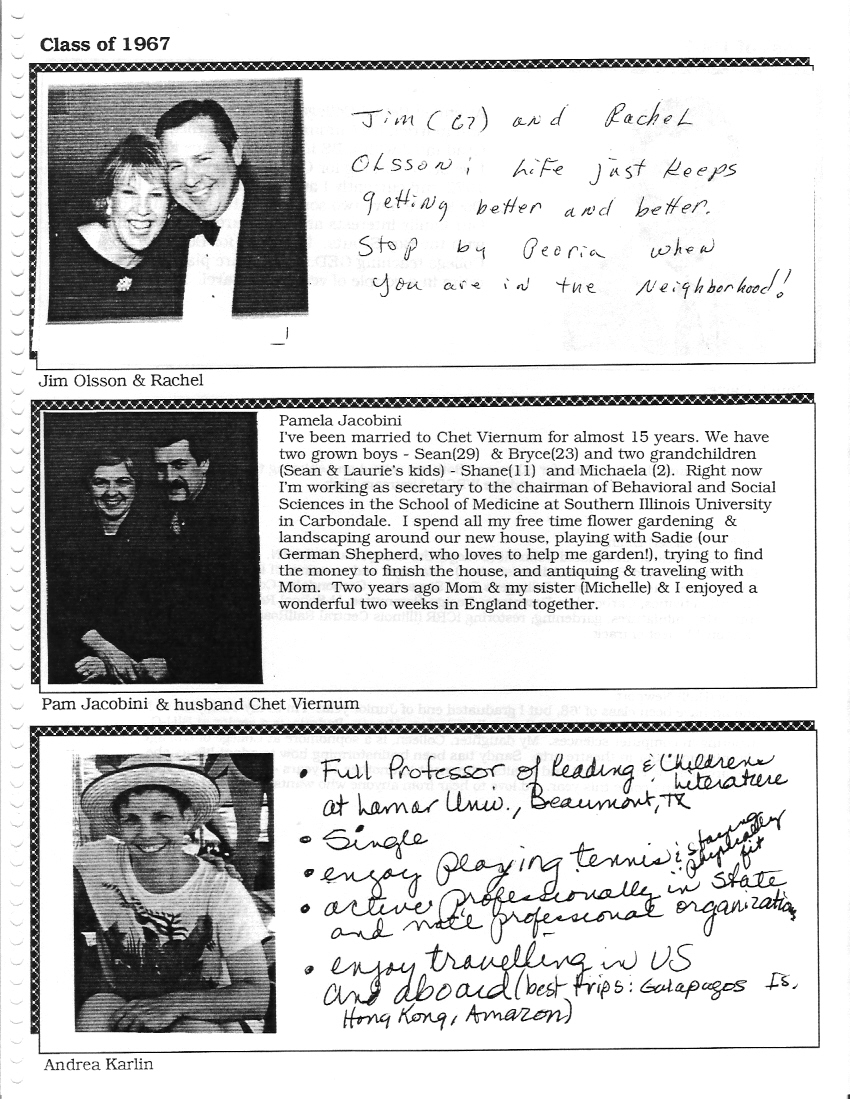 Class of 1967
Jim (67) and Rachel
Olsson: Life just keeps
getting better and better.
Stop by Peoria when
you are in the Neighborhood!
Jim Olsson & Rachel
Pamela Jacobini
I've been married to Chet Viernum for almost 15 years. We have
two grown boys - Sean(29) & Bryce(23) and two grandchildren
(Sean & Laurie's kids) - Shane(11) and Michaela (2). Right now
I'm working as secretary to the chairman of Behavioral and Social
Sciences in the School of Medicine at Southern Illinois University
in Carbondale. I spend all my free time flower gardening &
landscaping around our new house, playing with Sadie (our
German Shepherd, who loves to help me garden!), trying to find
the money to finish the house, and antiquing & traveling with
Mom. Two years ago Mom & my sister (Michelle) & I enjoyed a
wonderful two weeks in England together.
Pam Jacobini & husband Chet Viernum
• Full Professor of Reading & Childrens
Literature
at Lamar Univ., Beaumont, TX
• Single
• enjoy playing tennis & staying
physically
fit
• active professionally in state
and nat'l professional organizations
• enjoy travelling in US
and aboard (best trips: Galapagos Is,
Hong Kong, Amazon)
Andrea Karlin